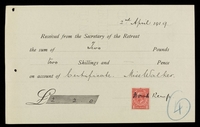 2nd April 1919
Received from the Secretary of the Retreat
the sum of two Pounds
two Shillings and Pence
on account of Miss Walker
£ 2 : 2
4